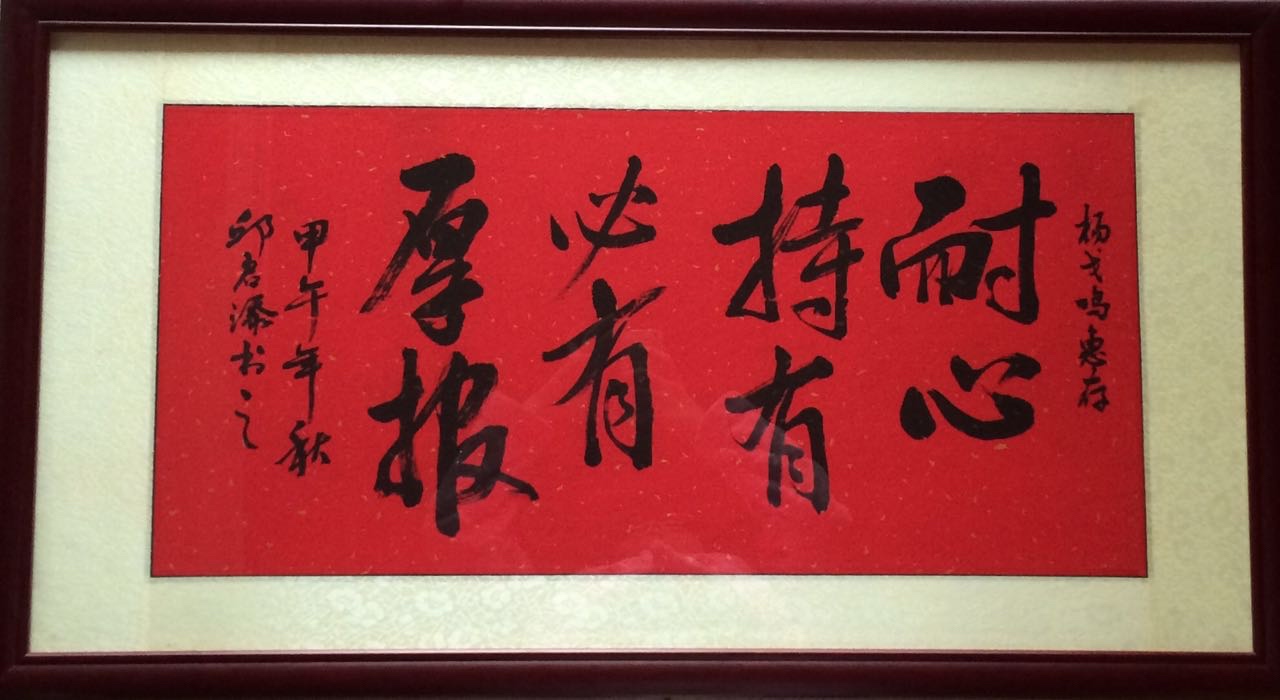 杨戈鸣惠存
耐心
持有
必有
厚报
甲午年秋
邱启瀑书之